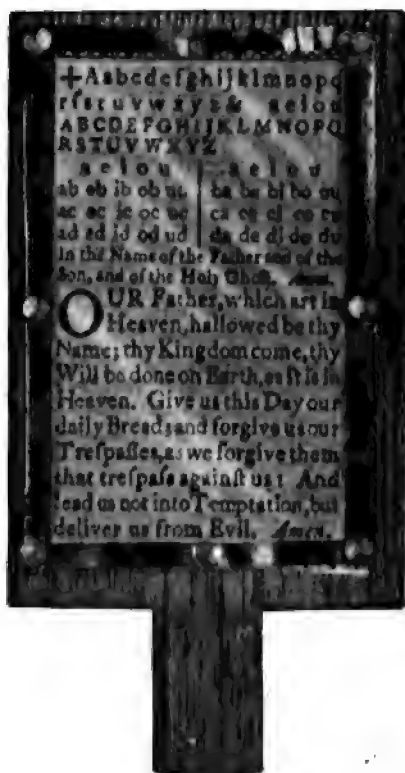 +Aabcdefghijklmnopq
rſstuvwxyz& aeiou
ABCDEFGHIJKLMNOPQ
RSTUVWXYZ
a e i o u a e i o u
ab eb ib ob ub ba be bi bo bu
ac ec ic oc uc ca ce ci co cu
ad ed id od ud da de di do du
In the Name of the Father and of the
Son, and of the Holy Ghoſt. Amen.
OUR Father, which art in
Heaven, hallowed be thy
Name; thy Kingdom come, thy
Will be done on Earth, as it is in
Heaven. Give us this Day our
daily Bread; and forgive us our
Treſpaſſes, as we forgive them
that treſpaſs againſt us: And
lead us not into Temptation, but
deliver us from Evil. Amen.